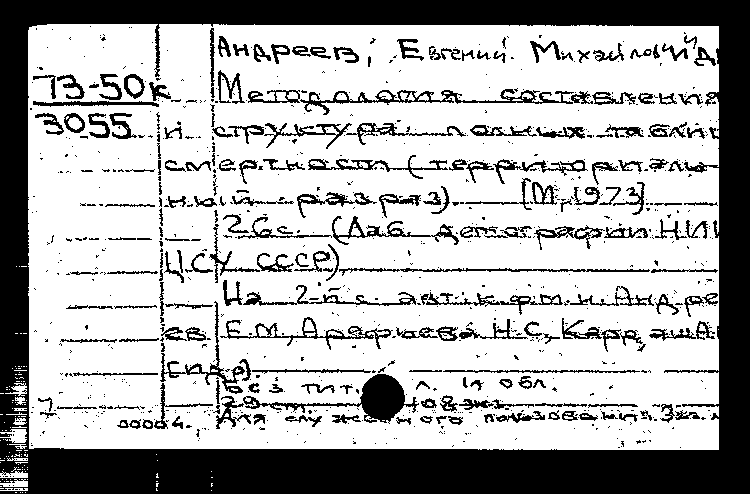 Андреев, Евгений Михайлович
73-50к
3055
Методология составления
и структура полных табли
смертности (территориаль-
ный разрез). [М., 1973].
26с. (Лаб. демографии НИИ
ЦСУ СССР).
На 2-й с. авт.: к.ф.м.н. Андре
ев Е.М., Арефьева Н.С., Карра
[и др].
Без тит. л. и обл.
29 см. 108 экз.
00004. Для служебного пользования. Экз.